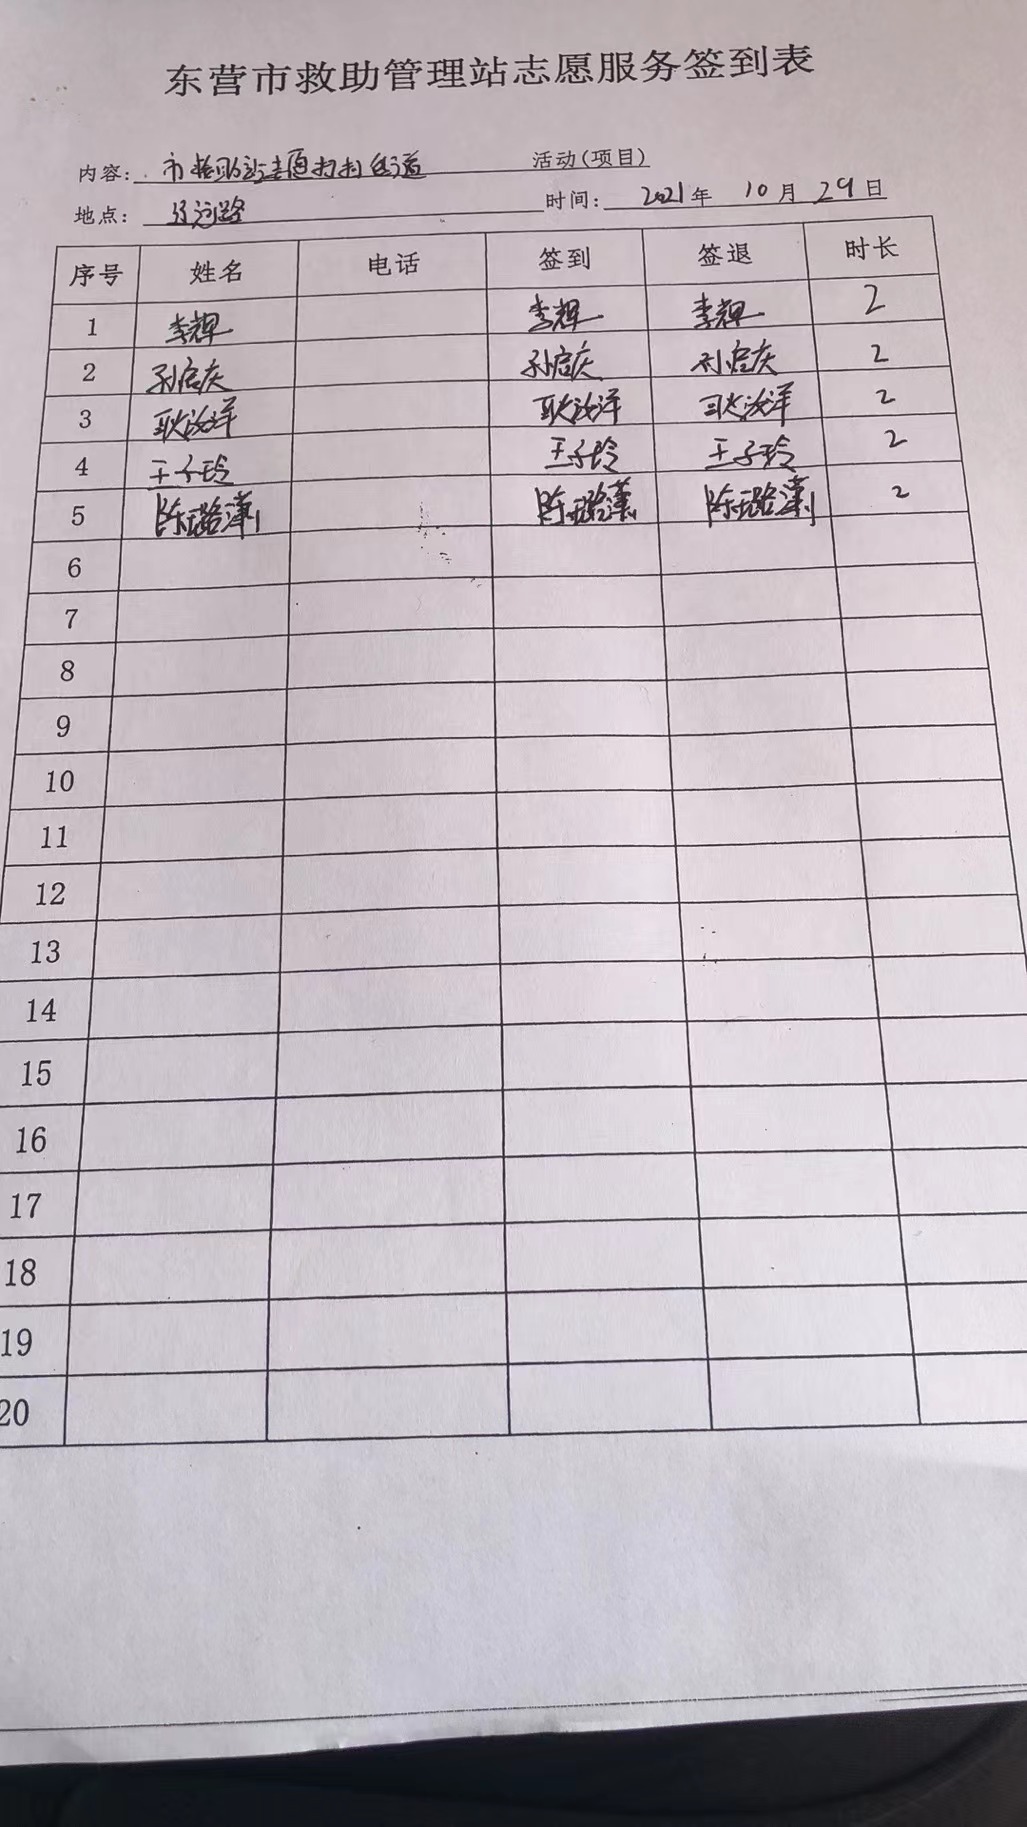 东营市救助管理站志愿服务签到表
内容: 市救助站志愿打扫街道 活动(项目)
地点: 辽河路 时间: 2021年 10月 29日
序号 姓名 电话 签到 签退 时长
1 李辉 李辉 李辉 2
2 孙启庆 孙启庆 孙启庆 2
3 耿汝洋 耿汝洋 耿汝洋 2
4 王子玲 王子玲 王子玲 2
5 陈璐潇 陈璐潇 陈璐潇 2
6
7
8
9
10
11
12
13
14
15
16
17
18
19
20